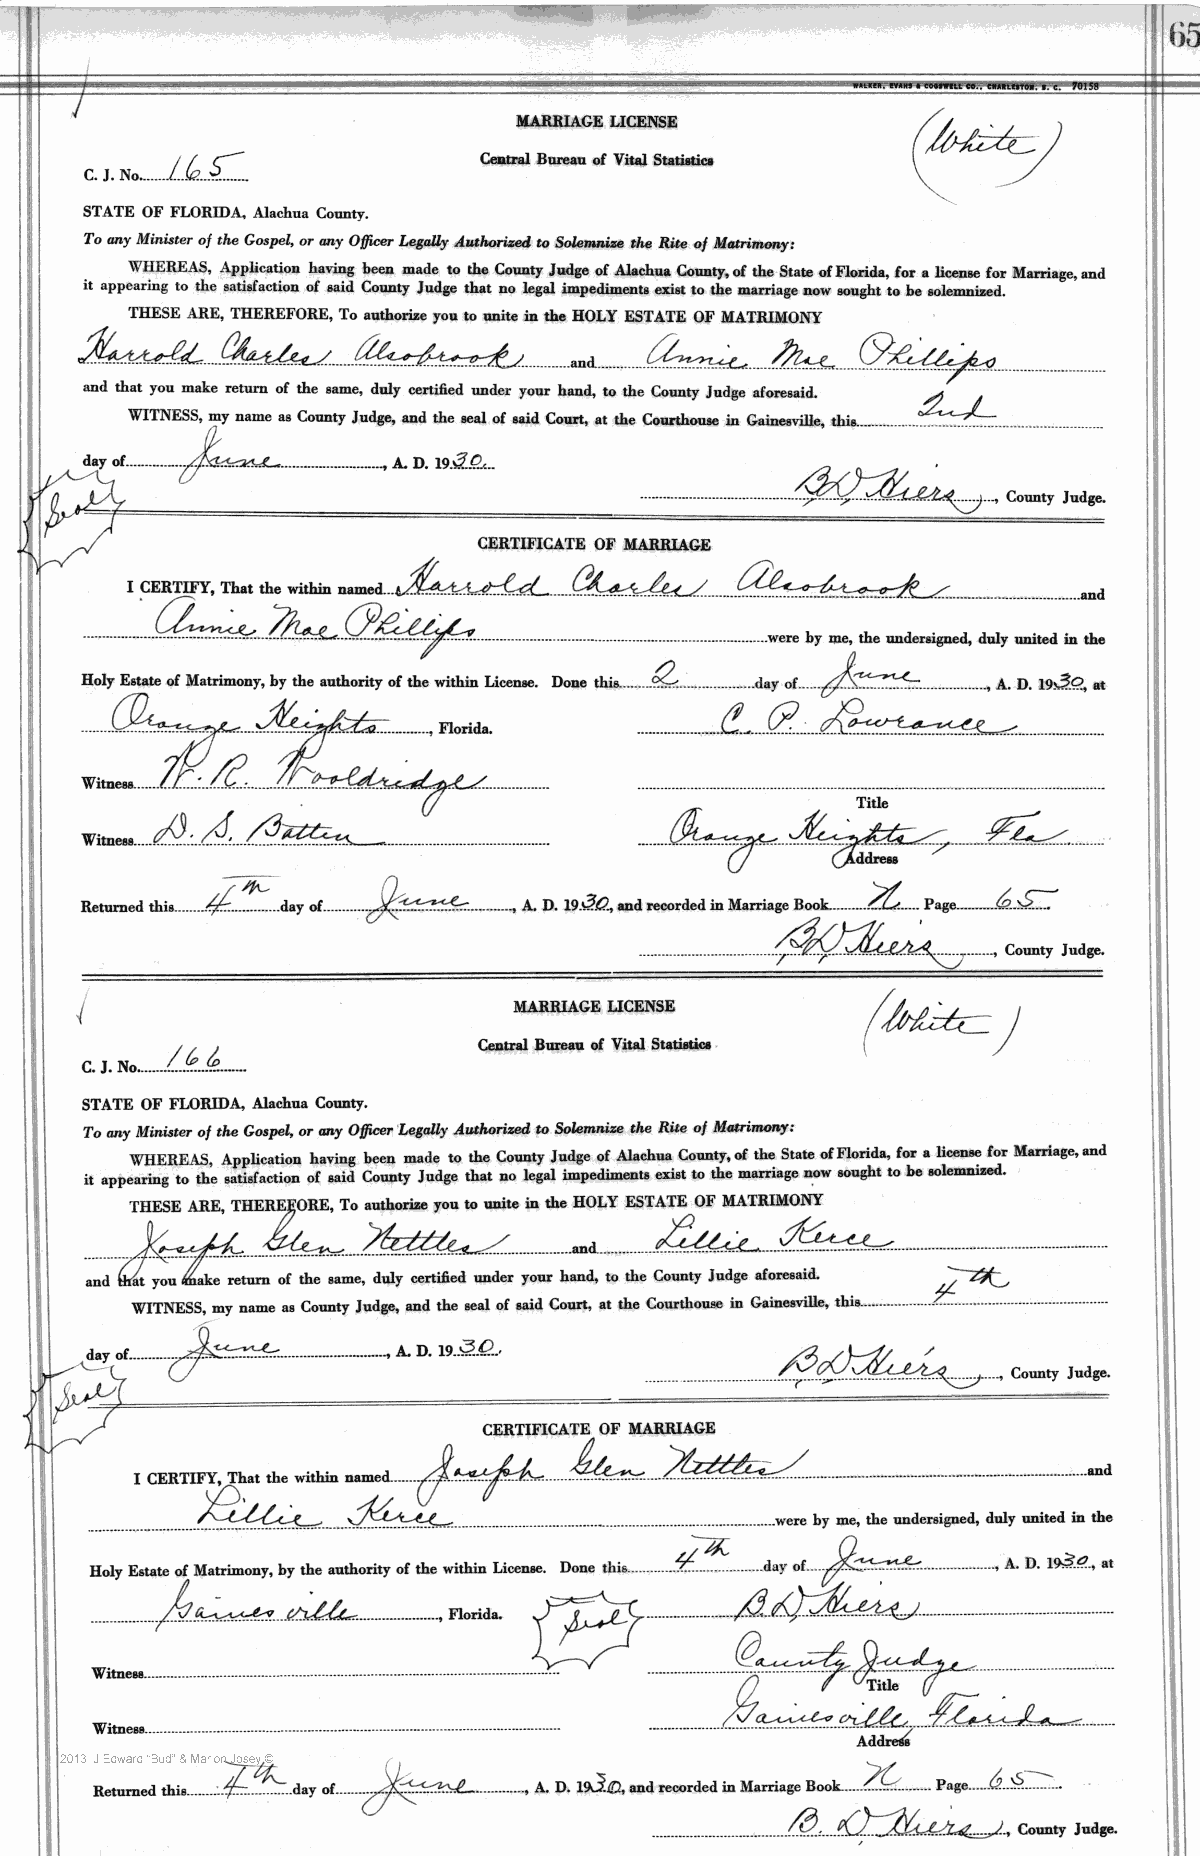 65
WALKER, EVANS & COGSWELL CO., CHARLESTON, S. C. 70158
MARRIAGE LICENSE
(White)
Central Bureau of Vital Statistics
C. J. No. 165
STATE OF FLORIDA, Alachua County.
To any Minister of the Gospel, or any Officer Legally Authorized to Solemnize the Rite of Matrimony:
WHEREAS, Application having been made to the County Judge of Alachua County, of the State of Florida, for a license for Marriage, and
it appearing to the satisfaction of said County Judge that no legal impediments exist to the marriage now sought to be solemnized.
THESE ARE, THEREFORE, To authorize you to unite in the HOLY ESTATE OF MATRIMONY
Harrold Charles Alsobrook and Annie Mae Phillips
and that you make return of the same, duly certified under your hand, to the County Judge aforesaid.
WITNESS, my name as County Judge, and the seal of said Court, at the Courthouse in Gainesville, this 2nd
day of June, A. D. 1930.
Seal
B.D. Hiers, County Judge.
CERTIFICATE OF MARRIAGE
I CERTIFY, That the within named Harrold Charles Alsobrook and
Annie Mae Phillips were by me, the undersigned, duly united in the
Holy Estate of Matrimony, by the authority of the within License. Done this 2 day of June, A. D. 1930, at
Orange Heights, Florida. C. P. Lowrance
Witness W. R. Wooldridge
Title
Witness D. S. Batten Orange Heights, Fla.
Address
Returned this 4th day of June, A. D. 1930, and recorded in Marriage Book N Page 65.
B.D. Hiers, County Judge.
MARRIAGE LICENSE
(White)
Central Bureau of Vital Statistics
C. J. No. 166
STATE OF FLORIDA, Alachua County.
To any Minister of the Gospel, or any Officer Legally Authorized to Solemnize the Rite of Matrimony:
WHEREAS, Application having been made to the County Judge of Alachua County, of the State of Florida, for a license for Marriage, and
it appearing to the satisfaction of said County Judge that no legal impediments exist to the marriage now sought to be solemnized.
THESE ARE, THEREFORE, To authorize you to unite in the HOLY ESTATE OF MATRIMONY
Joseph Glen Nettles and Lillie Kerce
and that you make return of the same, duly certified under your hand, to the County Judge aforesaid.
WITNESS, my name as County Judge, and the seal of said Court, at the Courthouse in Gainesville, this 4th
day of June, A. D. 1930.
B.D. Hiers, County Judge.
Seal
CERTIFICATE OF MARRIAGE
I CERTIFY, That the within named Joseph Glen Nettles and
Lillie Kerce were by me, the undersigned, duly united in the
Holy Estate of Matrimony, by the authority of the within License. Done this 4th day of June, A. D. 1930, at
Gainesville, Florida. Seal B.D. Hiers
Witness County Judge
Title
Witness Gainesville, Florida
Address
2013 J Edward "Bud" & Marion Josey ©
Returned this 4th day of June, A. D. 1930, and recorded in Marriage Book N Page 65.
B. D. Hiers, County Judge.